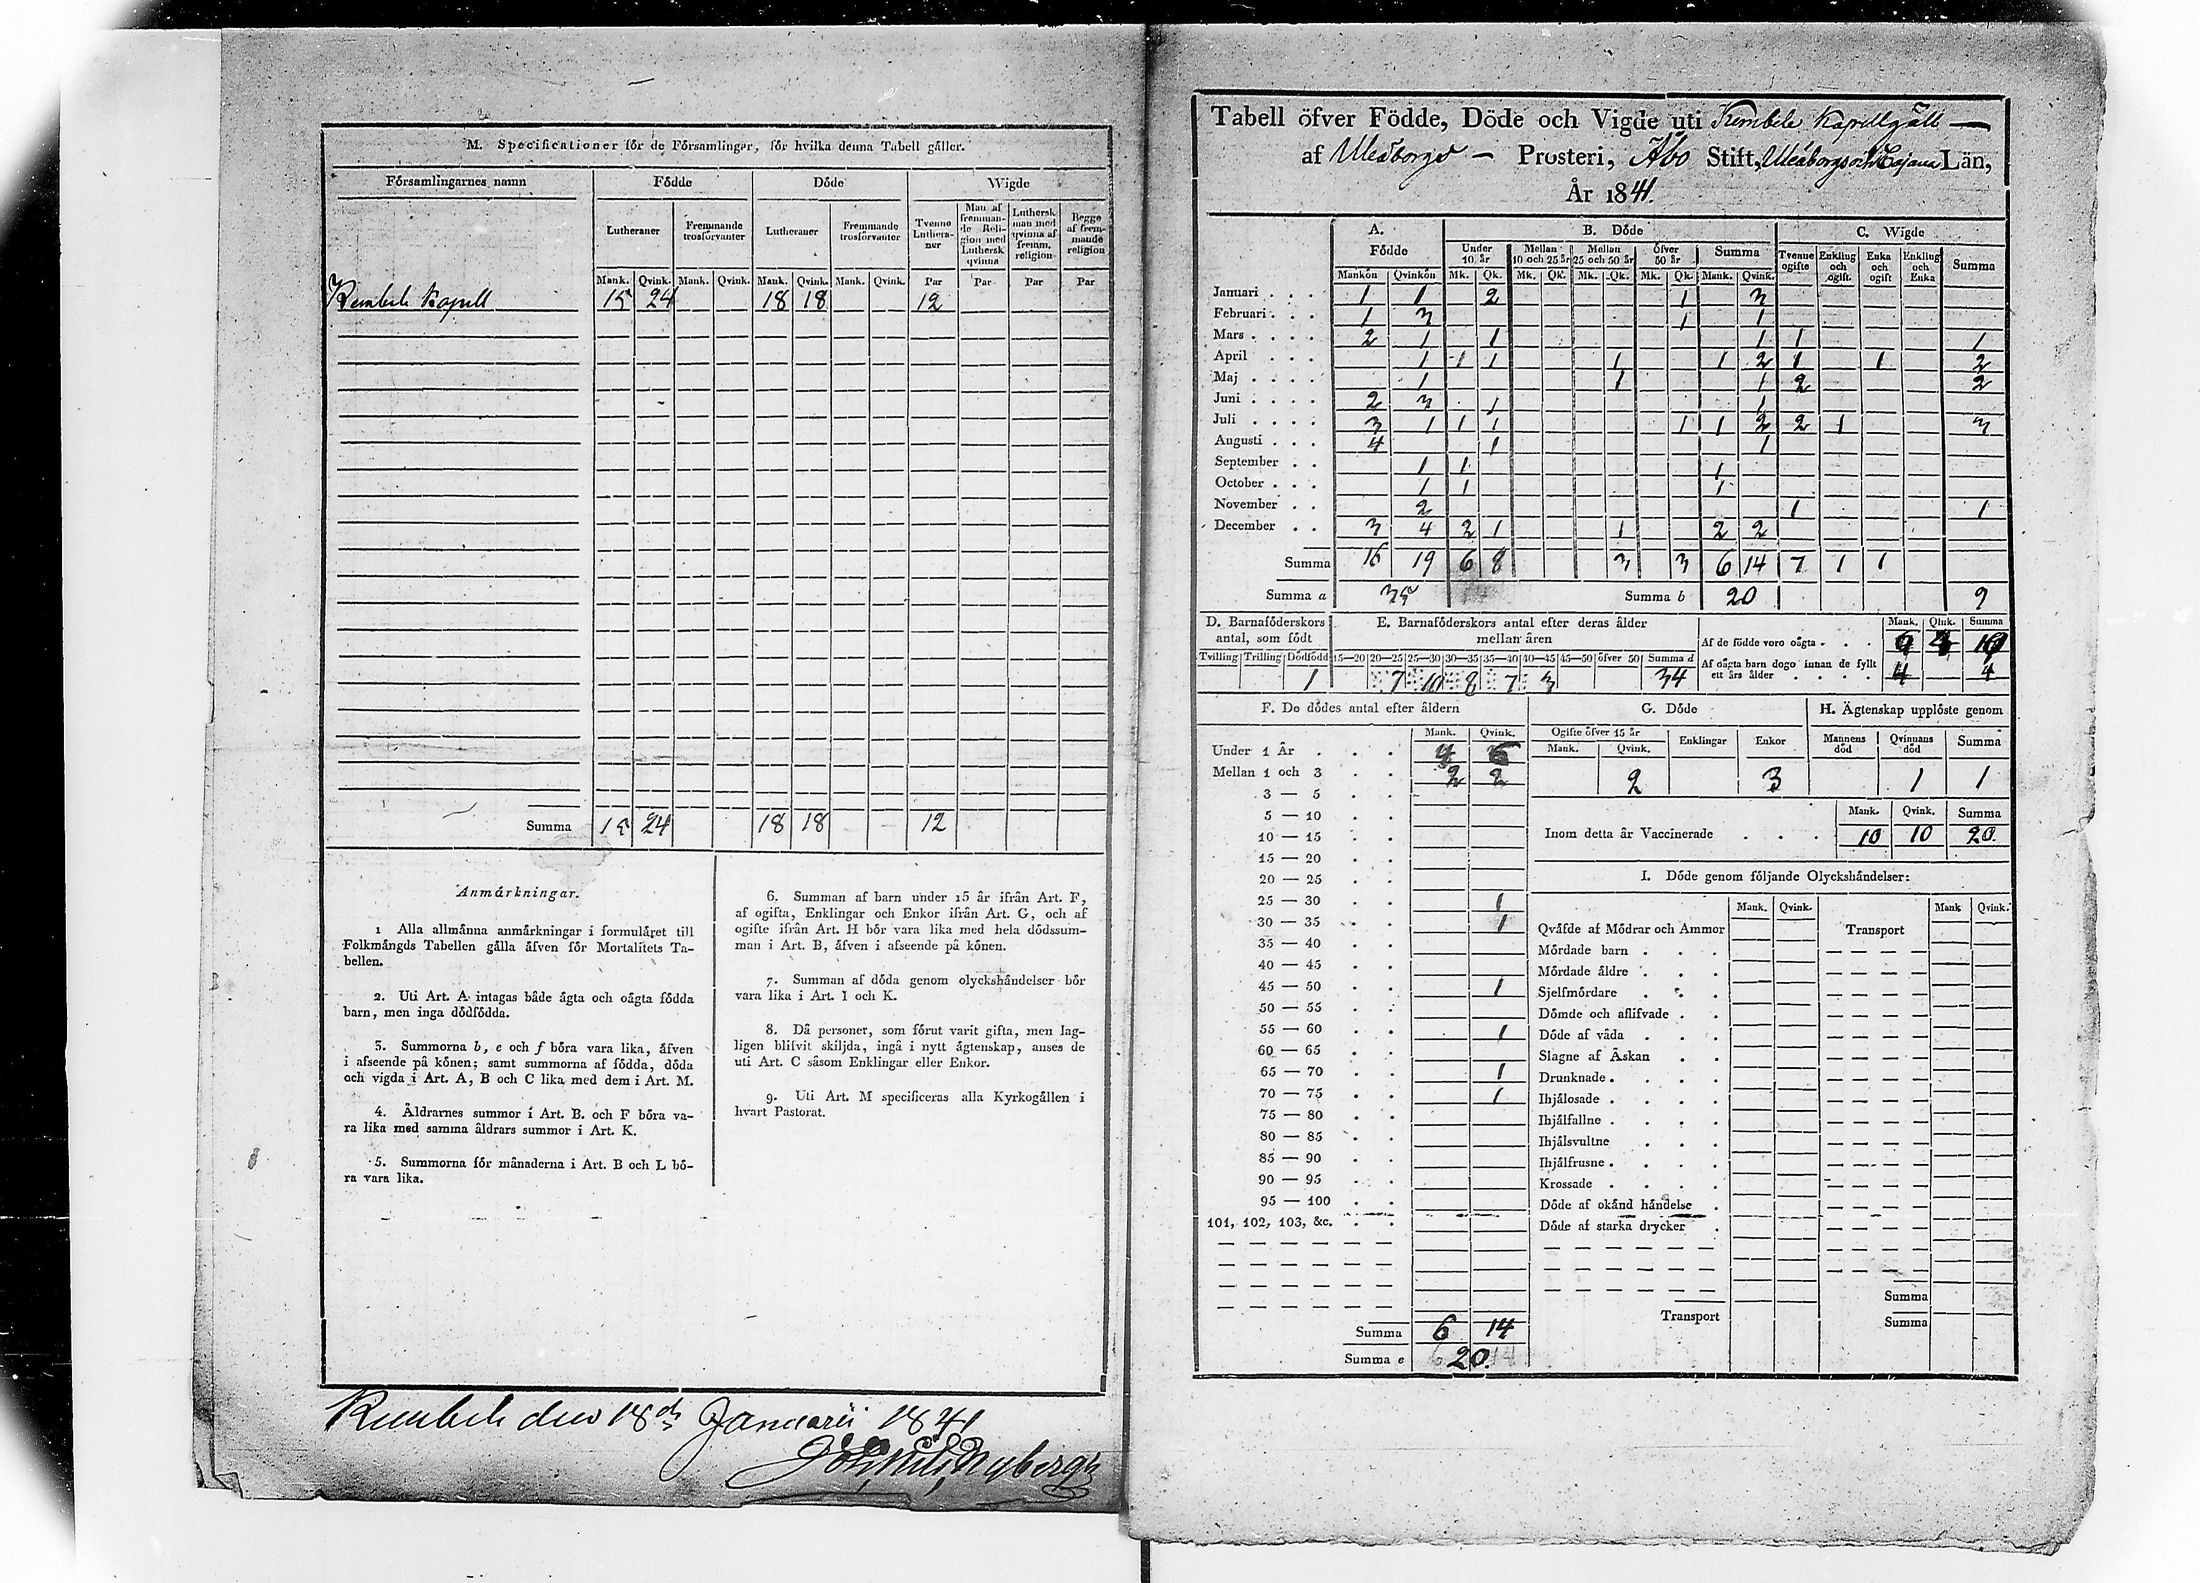 M. Specificationer för de Församlingar, för hvilka denna Tabell gäller.
Församlingarnes namn Födde Döde Wigde
Lutheraner Fremmande trosförvanter Lutheraner Fremmande trosförvanter Tvenne Luthera-ner Man af fremman-de Reli-gion med Luthersk qvinna Luthersk man med qvinna af fremm. religion Begge af frem-mande religion
Mank. Qvink. Mank. Qvink. Mank. Qvink. Mank. Qvink. Par Par Par Par
Kembele Kapell 15 24 18 18 12
Summa 15 24 18 18 12
Anmärkningar.
1 Alla allmänna anmärkningar i formuläret till
Folkmängds Tabellen gälla äfven för Mortalitets Ta-
bellen.
2. Uti Art. A intagas både ägta och oägta födda
barn, men inga dödfödda.
3. Summorna b, e och f böra vara lika, äfven
i afseende på könen; samt summorna af födda, döda
och vigda i Art. A, B och C lika med dem i Art. M.
4. Åldrarnes summor i Art. B. och F böra va-
ra lika med samma åldrars summor i Art. K.
5. Summorna för månaderna i Art. B och L bö-
ra vara lika.
6. Summan af barn under 15 år ifrån Art. F,
af ogifta, Enklingar och Enkor ifrån Art. G, och af
ogifte ifrån Art. H bör vara lika med hela dödssum-
man i Art. B, äfven i afseende på könen.
7. Summan af döda genom olyckshändelser bör
vara lika i Art. I och K.
8. Då personer, som förut varit gifta, men lag-
ligen blifvit skiljda, ingå i nytt ägtenskap, anses de
uti Art. C såsom Enklingar eller Enkor.
9. Uti Art. M specificeras alla Kyrkogällen i
hvart Pastorat.
Kembele den 18de Januarii 1841
Nyberg
Tabell öfver Födde, Döde och Vigde uti Kembele Kapellgäll
af Uleåborgs Prosteri, Åbo Stift, Uleåborgs och Cajana Län,
År 1841.
A. B. Döde C. Wigde
Födde Under 10 år Mellan 10 och 25 år Mellan 25 och 50 år öfver 50 år Summa Tvenne ogifte Enkling och ogift. Enka och ogift Enkling och Enka Summa
Mankön Qvinkön Mk. Qk. Mk. Qk. Mk. Qk. Mk. Qk. Mank. Qvink.
Januari 1 1 2 1 3
Februari 1 3 1 1
Mars 2 1 1 1 1 1
April 1 1 1 1 1 2 1 1 2
Maj 1 1 1 2 2
Juni 2 3 1 1
Juli 3 1 1 1 1 1 2 2 1 3
Augusti 4 1 1
September 1 1 1
October 1 1 1
November 2 1 1
December 3 4 2 1 1 2 2
Summa 16 19 6 8 3 3 6 14 7 1 1
Summa a 35 Summa b 20 9
D. Barnaföderskors antal, som födt
Tvilling Trilling Dödfödd
1
E. Barnaföderskors antal efter deras ålder mellan åren
15—20 20—25 25—30 30—35 35—40 40—45 45—50 öfver 50 Summa d
7 10 8 7 3 34
Mank. Qink. Summa
Af de födde voro oägta
Af oägta barn dogo innan de fyllt
ett års ålder 4 4
F. De dödes antal efter åldern
Mank. Qvink.
Under 1 År 4 6
Mellan 1 och 3 2 2
3 — 5
5 — 10
10 — 15
15 — 20
20 — 25
25 — 30 1
30 — 35 1
35 — 40
40 — 45
45 — 50 1
50 — 55
55 — 60 1
60 — 65
65 — 70 1
70 — 75 1
75 — 80
80 — 85
85 — 90
90 — 95
95 — 100
101, 102, 103, &c.
Summa 6 14
Summa e 20.
G. Döde
Ogifte öfver 15 år Enklingar Enkor
Mank. Qvink.
2 3
H. Ägtenskap upplöste genom
Mannens död Qvinnans död Summa
1 1
Mank. Qvink. Summa
Inom detta år Vaccinerade 10 10 20.
I. Döde genom följande Olyckshändelser:
Mank. Qvink. Mank Qvink.
Qväfde af Mödrar och Ammor Transport
Mördade barn
Mördade äldre
Sjelfmördare
Dömde och aflifvade
Döde af våda
Slagne af Åskan
Drunknade
Ihjälosade
Ihjälfallne
Ihjälsvultne
Ihjälfrusne
Krossade
Döde af okänd händelse
Döde af starka drycker
Summa
Transport Summa